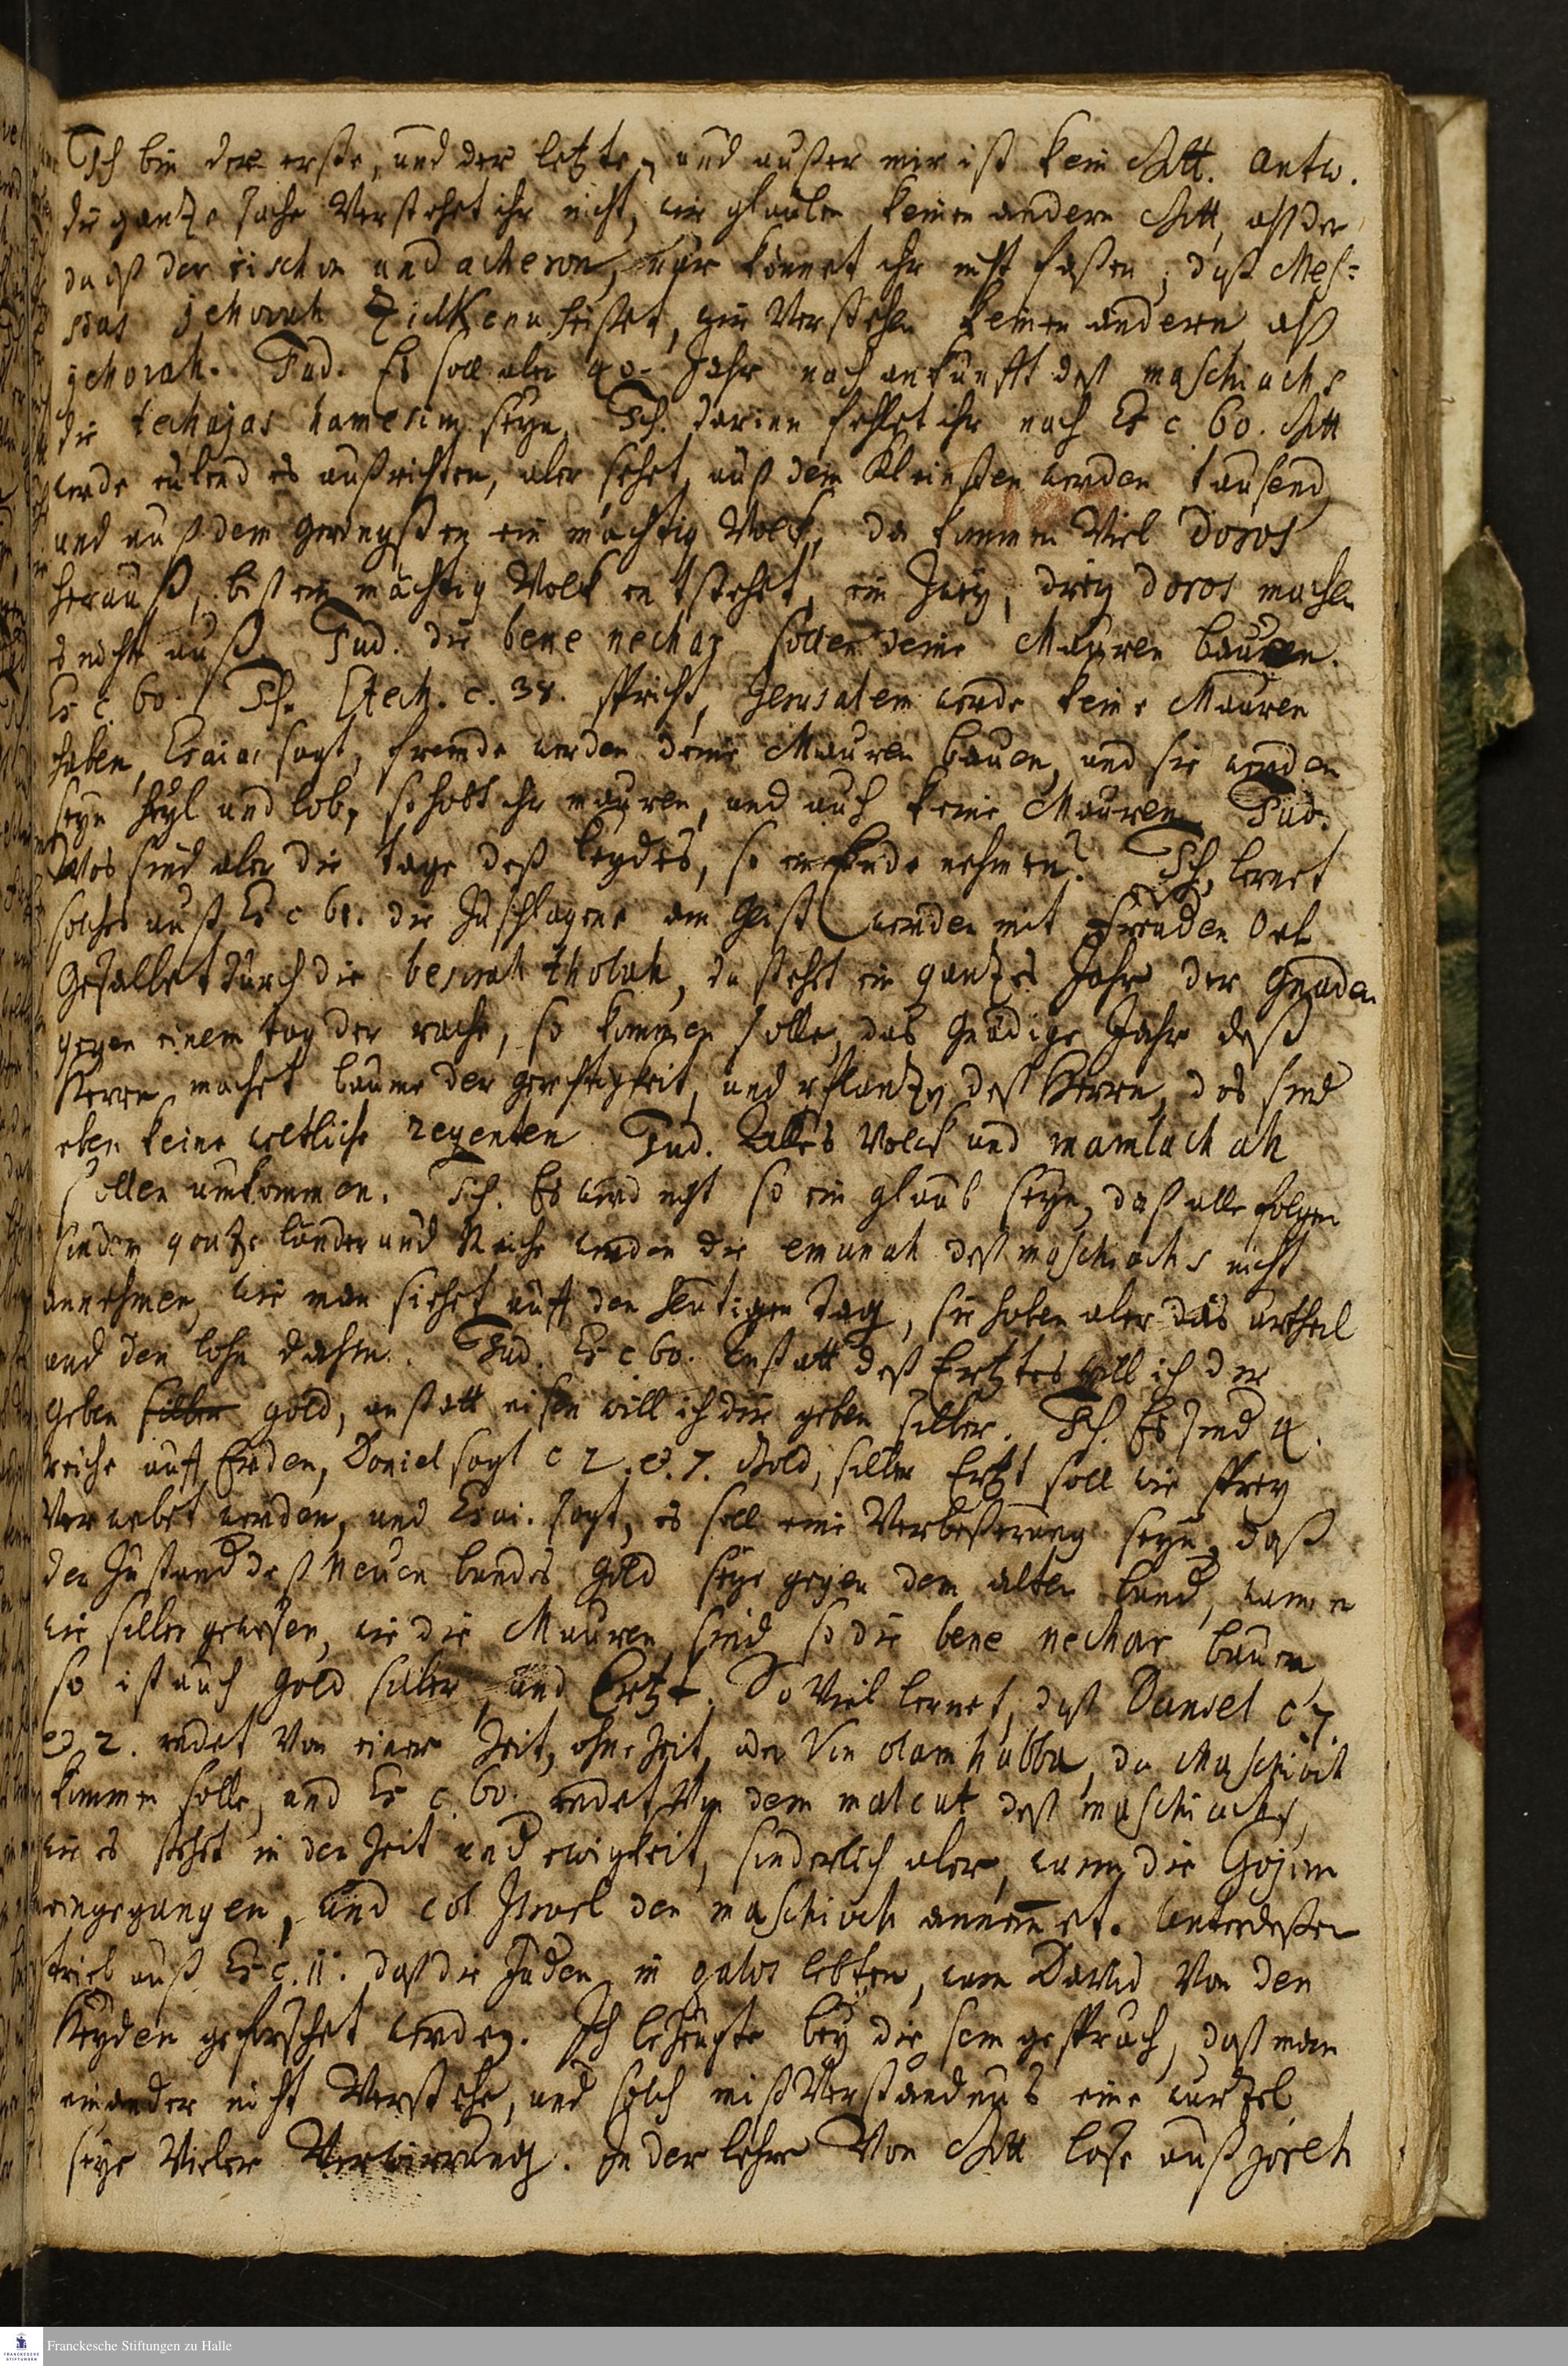 Ich bin der erste, und der letzte, und außer mir ist kein Gott. antw.
die gantze sache Verstehet ihr nicht, wir glauben keinen andern Gott, alß der
da ist der rischon und acheron, nur könnet ihr nicht faßen, daß Mes-
sias jehovah Zidkenu heißet, wir Verstehen keinen andern alß
jehovah. Jud. Es soll aber 40. Jahr nach ankunfft deß maschiachs
die techajas hamesim seyn. Ich. darinn fehlet ihr nach Es c 60. Gott
werde eilend es außrichten, aber sehet, auß dem Kleinsten werden tausend
und auß dem geringsten ein mächtig Volck, da kommen Viel doros
herauß, biß ein mächtig Volck entstehet, ein zwey, drey doros machen
es nicht auß. Jud. die bene nechar sollen deine Mauren bauen.
Es c. 60. Ich. Ezech. c. 38. spricht, Jerusalem werde keine Mauren
haben, Esaias sagt, fremde werden deine Mauren bauen, und sie werden
seyn heyl und lob, so habt ihr mauren, und auch keine Mauren. Jud.
Was sind aber die tage deß leydes, so ein Ende nehmen? Ich, lernet
solches auß Es c 61. die Zuschlagene am Geist werden mit Freuden Oel
gesalbet durch die besorah tholah, da stehet ein gantzes Jahr der Gnaden
gegen einem tag der rache, so kommen solle, das Gnädige Jahr deß
Herren machet bäume der gerechtigkeit, und pflantzen deß Herren, das sind
eben keine weltliche regenten. Jud. Alles Volck und mamlachah
sollen umkommen. Ich. Es wird nicht so ein glaub seyn, daß alle folgen
sondern gantze länder und Reiche werden die emunah deß maschiachs nicht
annehmen, wie man siehet auff den heutigen Tag, sie haben aber das urtheil
und den lohn dahin. Jud. Es c 60. anstatt deß Ertztes will ich dir
geben silber gold, anstatt eisen will ich dir geben silber. Ich. Es sind 4.
reiche auff Erden, Daniel sagt c 2. & 7. Gold, silber Ertzt soll wie sprey
Verwebet werden, und Esai. sagt, es soll eine Verbeßerung seyn, daß
der Zustand deß Neuen bundes Gold seye gegen dem alten bund, wann er
wie silber gewesen, wie die Mauren sind so die bene nechar bauen,
so ist auch Gold silber, und Ertzt. So Viel lernet, daß Daniel c 7.
& 2. redet Von einer Zeit, ohne Zeit, oder Von olam habba, da Maschiach
kommen solle, und Es c. 60. redet Von dem malcut deß maschiachs,
wie es stehet in der Zeit und ewigkeit, sonderlich aber, wann die Gojim
eingegangen, und col Israel den maschiach annimmet. Unterdeßen
trieb auß Es c. 11. daß die Juden in galos lebten, wann David Von den
Heyden geforschet werden. Ich bezeugte bey diesem gespräch, daß man
einander nicht Verstehe, und solch mißVerständnus eine wurtzel
seye Vieler Verwirrung. In der lehre Von Gott lase auß